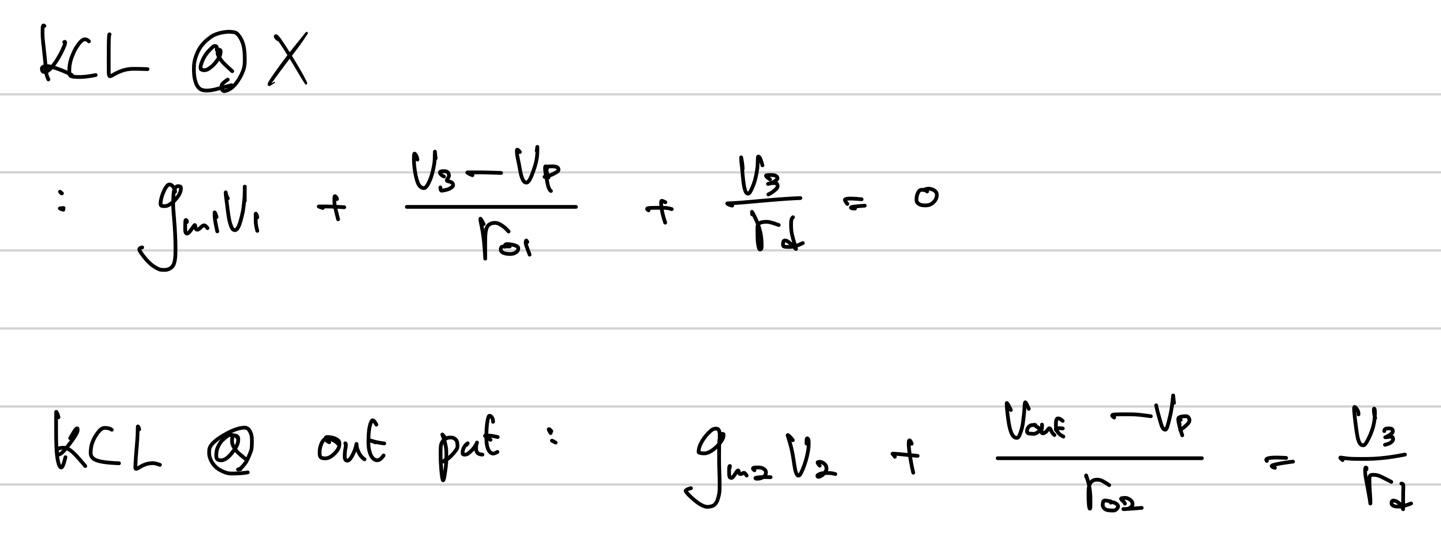 KCL @ X
: gm1V1 + (V3 − VP)/ro1 + V3/rd = 0
KCL @ out put : gm2 V2 + (Vout − VP)/ro2 = V3/rd